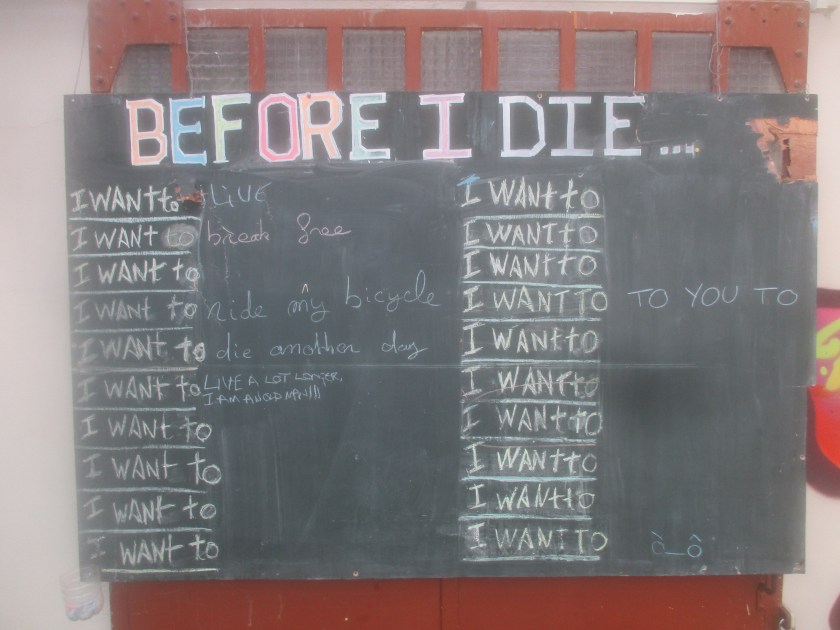 BEFORE I DIE...
I WANT to LIVE
I WANT to break free
I WANT to
I WANT to ride my bicycle
I WANT to die another day
I WANT to LIVE A LOT LONGER.
I AM AN OLD MAN!!!
I WANT to
I WANT to
I WANT to
I WANT to
I WANT to
I WANT to
I WANT to
I WANT TO TO YOU TO
I WANT to
I WANT to
I WANT to
I WANT to
I WANT to
I WANT TO ò_ô